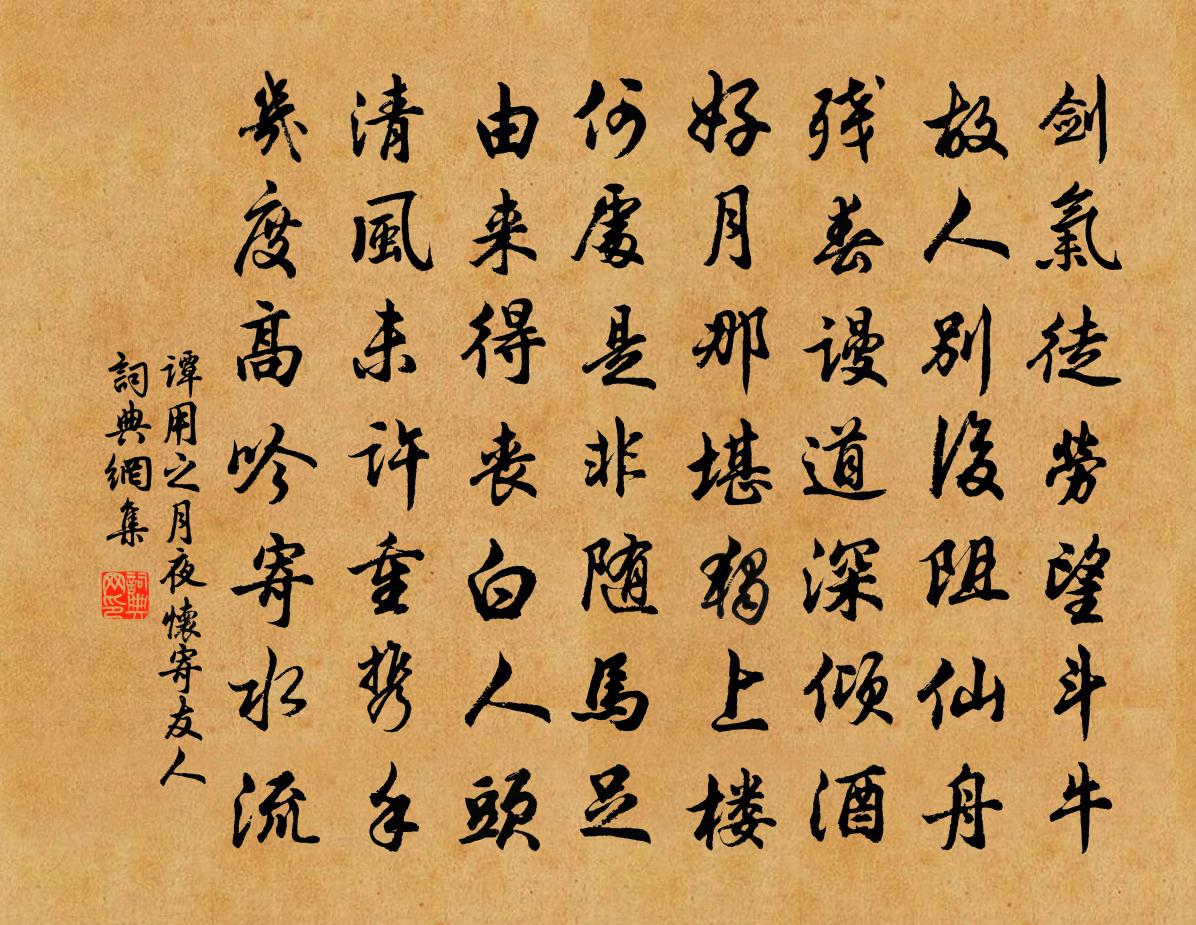 剑氣徒勞望斗牛
故人别後阻仙舟
残春謾道深倾酒
好月那堪獨上楼
何處是非随馬足
由来得丧白人頭
清風未許重携手
幾度高吟寄水流
谭用之月夜懷寄友人
詞典網集
詞典网印